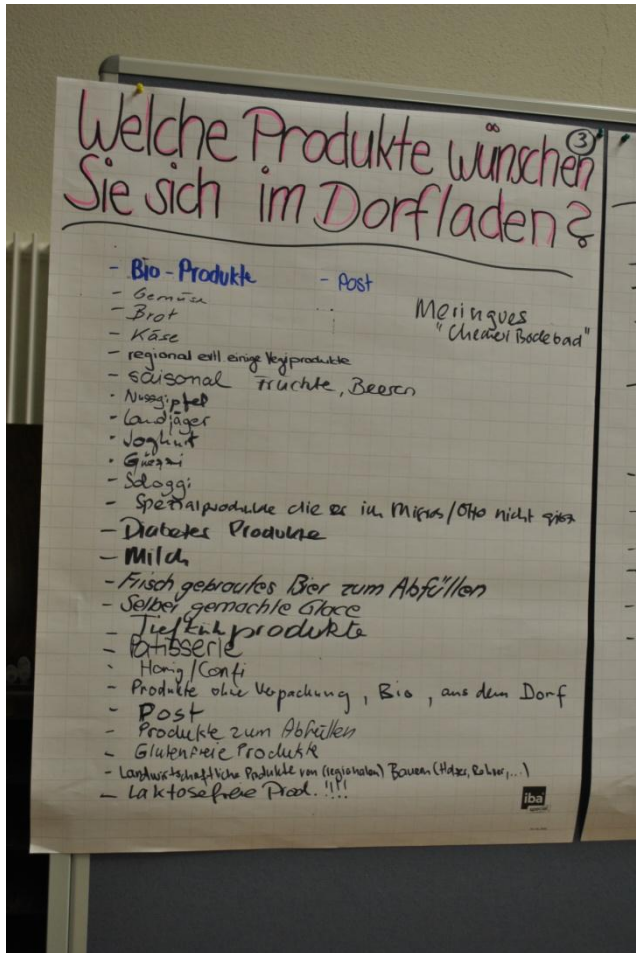 Welche Produkte wünschen ③
Sie sich im Dorfladen?
- Bio-Produkte - Post
- Gemüse
- Brot
Meringues
"Chemi Bodebad"
- Käse
- regional evtl einige Vegiprodukte
- saisonal Früchte, Beeren
- Nussgipfel
- Landjäger
- Joghurt
- Guetzi
- Schoggi
- Spezialprodukte die es im Migros/Otto nicht gibt
- Diabetes Produkte
- Milch
- Frisch gebrautes Bier zum Abfüllen
- Selber gemachte Glace
- Tiefkühlprodukte
- Patisserie
- Honig/Confi
- Produkte ohne Verpackung, Bio, aus dem Dorf
- Post
- Produkte zum Abfüllen
- Glutenfreie Produkte
- Landwirtschaftliche Produkte von (regionalen) Bauern (Rohrer,...)
- Laktosefreie Prod. !!!!
iba